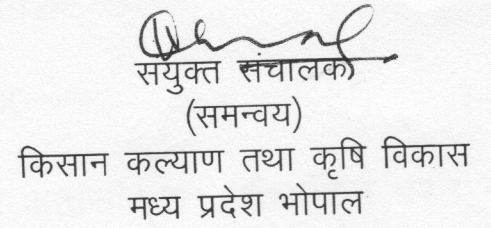 सयुक्त संचालक
(समन्वय)
किसान कल्याण तथा कृषि विकास
मध्य प्रदेश भोपाल